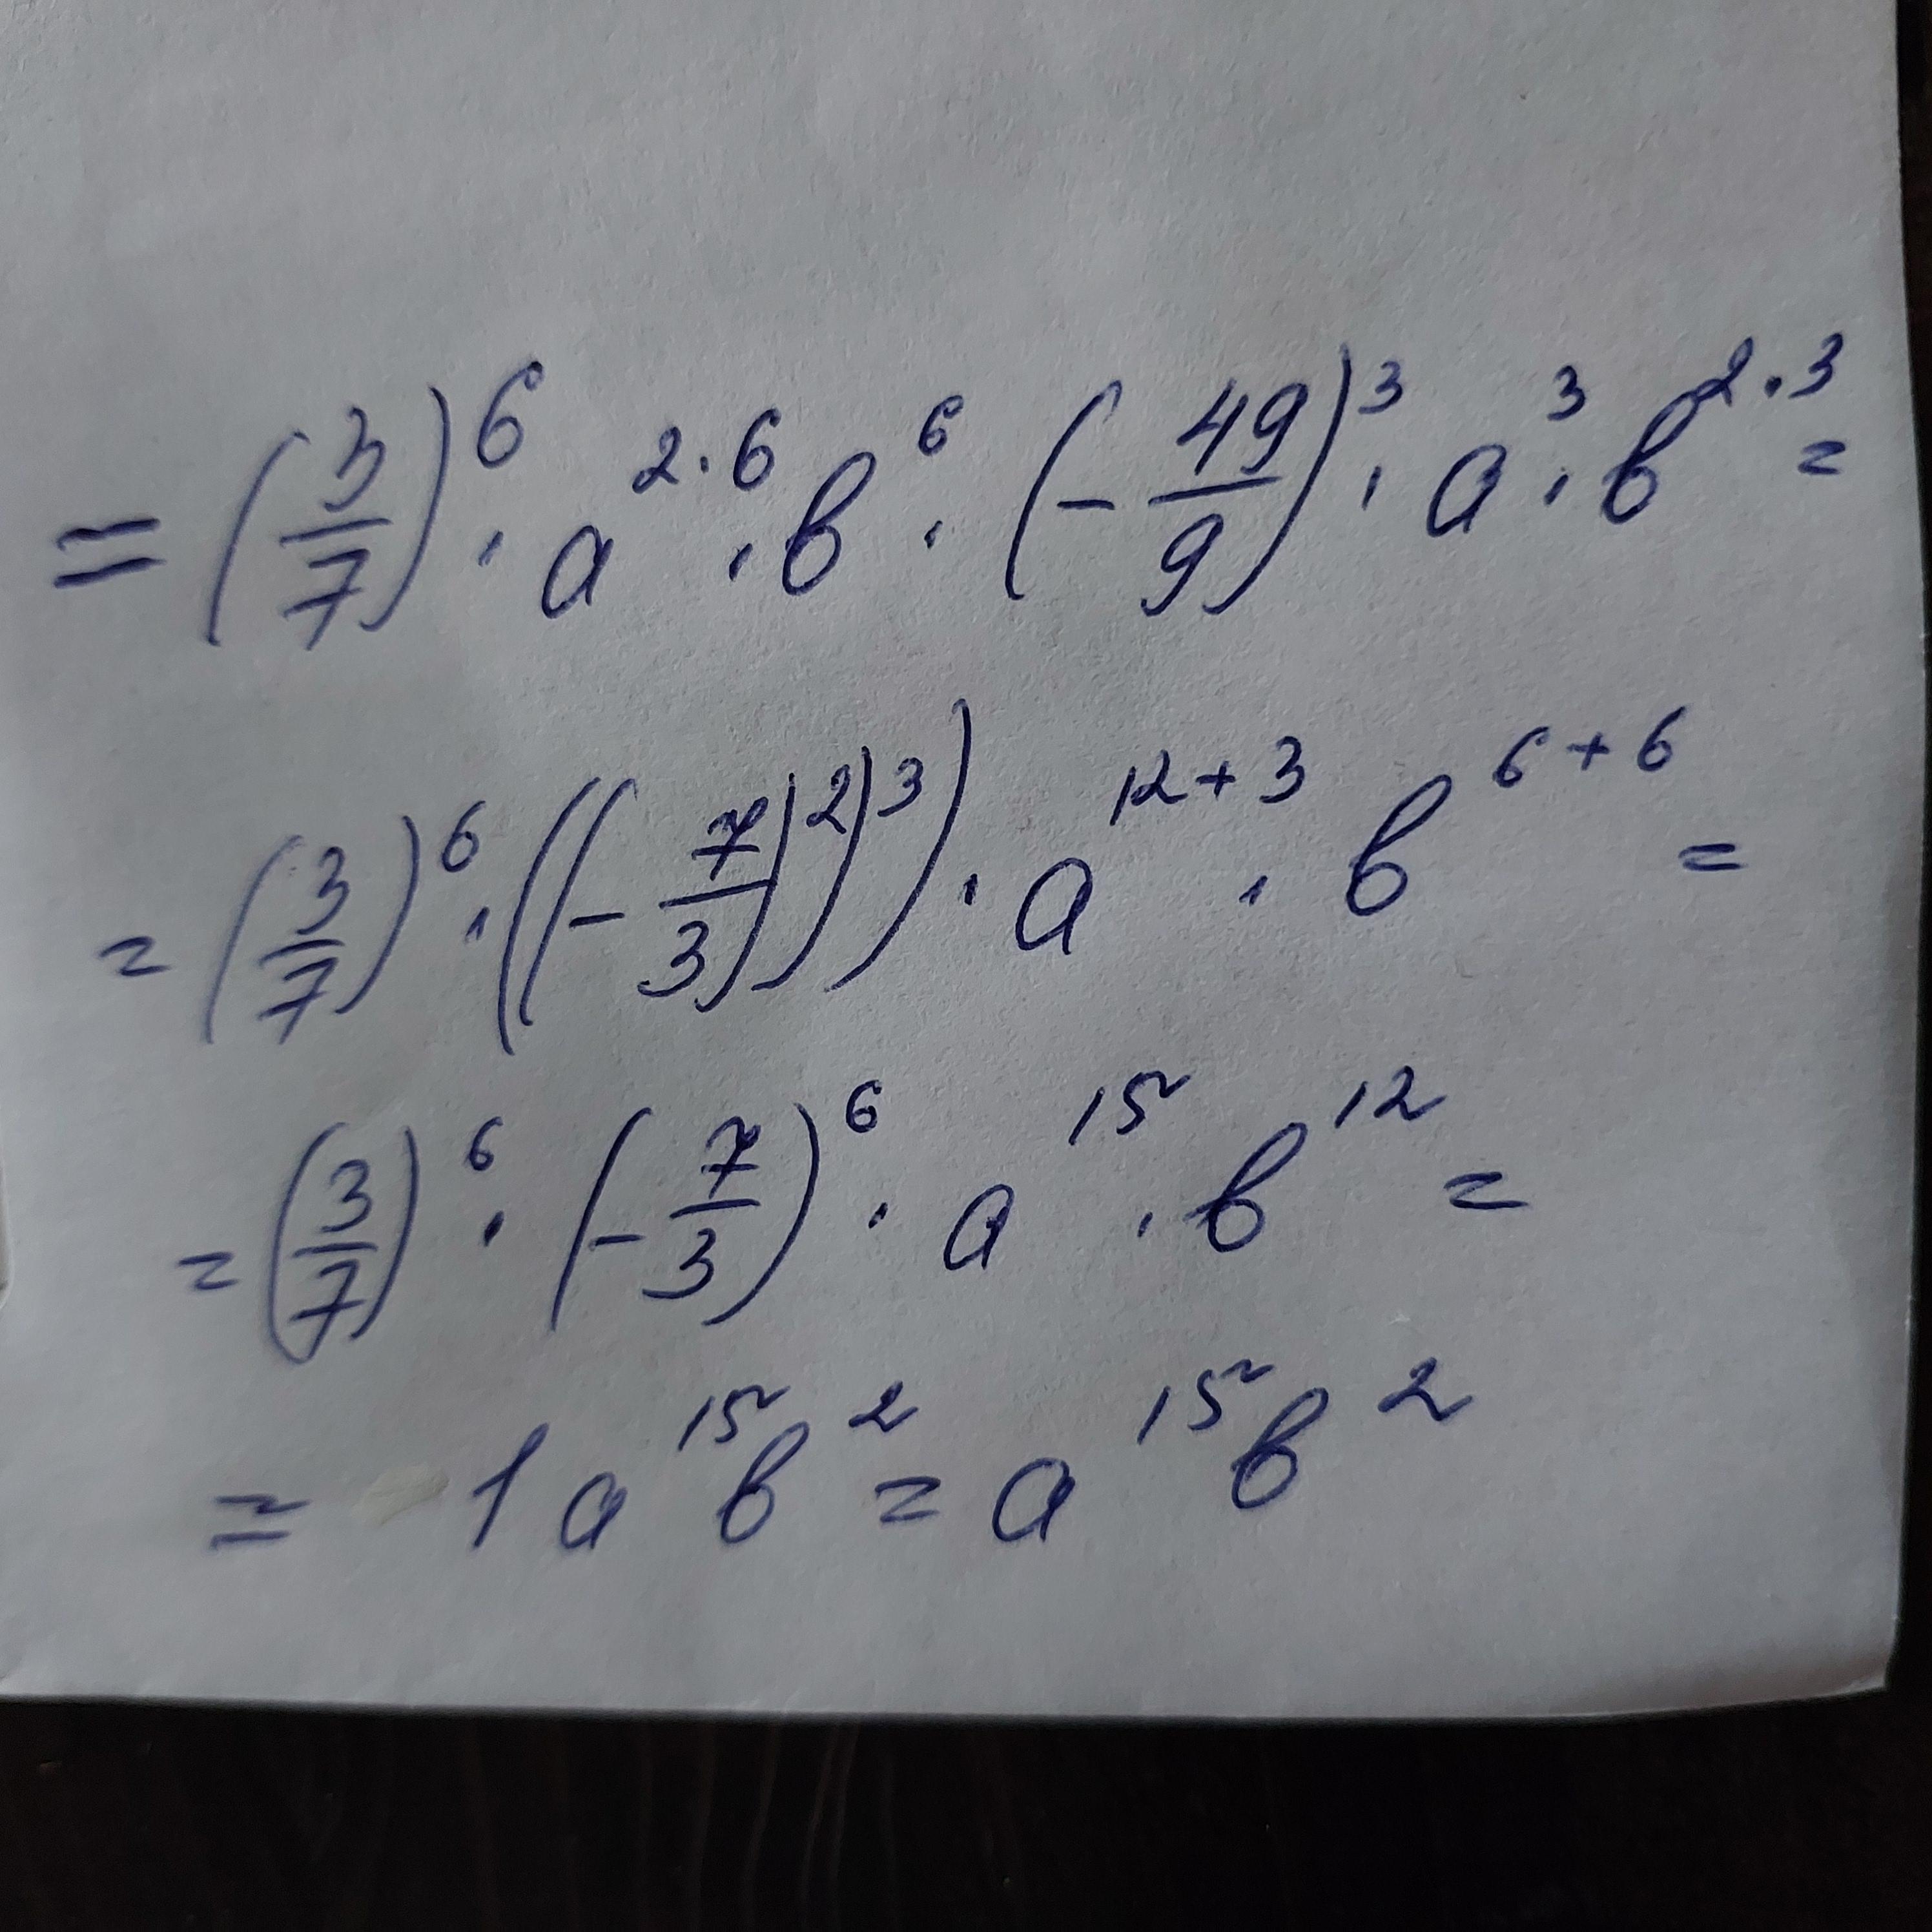 = (3/7)^6 · a^{2·6} · b^6 · (-49/9)^3 · a^3 · b^{2·3} =
= (3/7)^6 · ((-7/3)^2)^3) · a^{12+3} · b^{6+6} =
= (3/7)^6 · (-7/3)^6 · a^{15} · b^{12} =
= 1a^{15}b^2 = a^{15}b^2